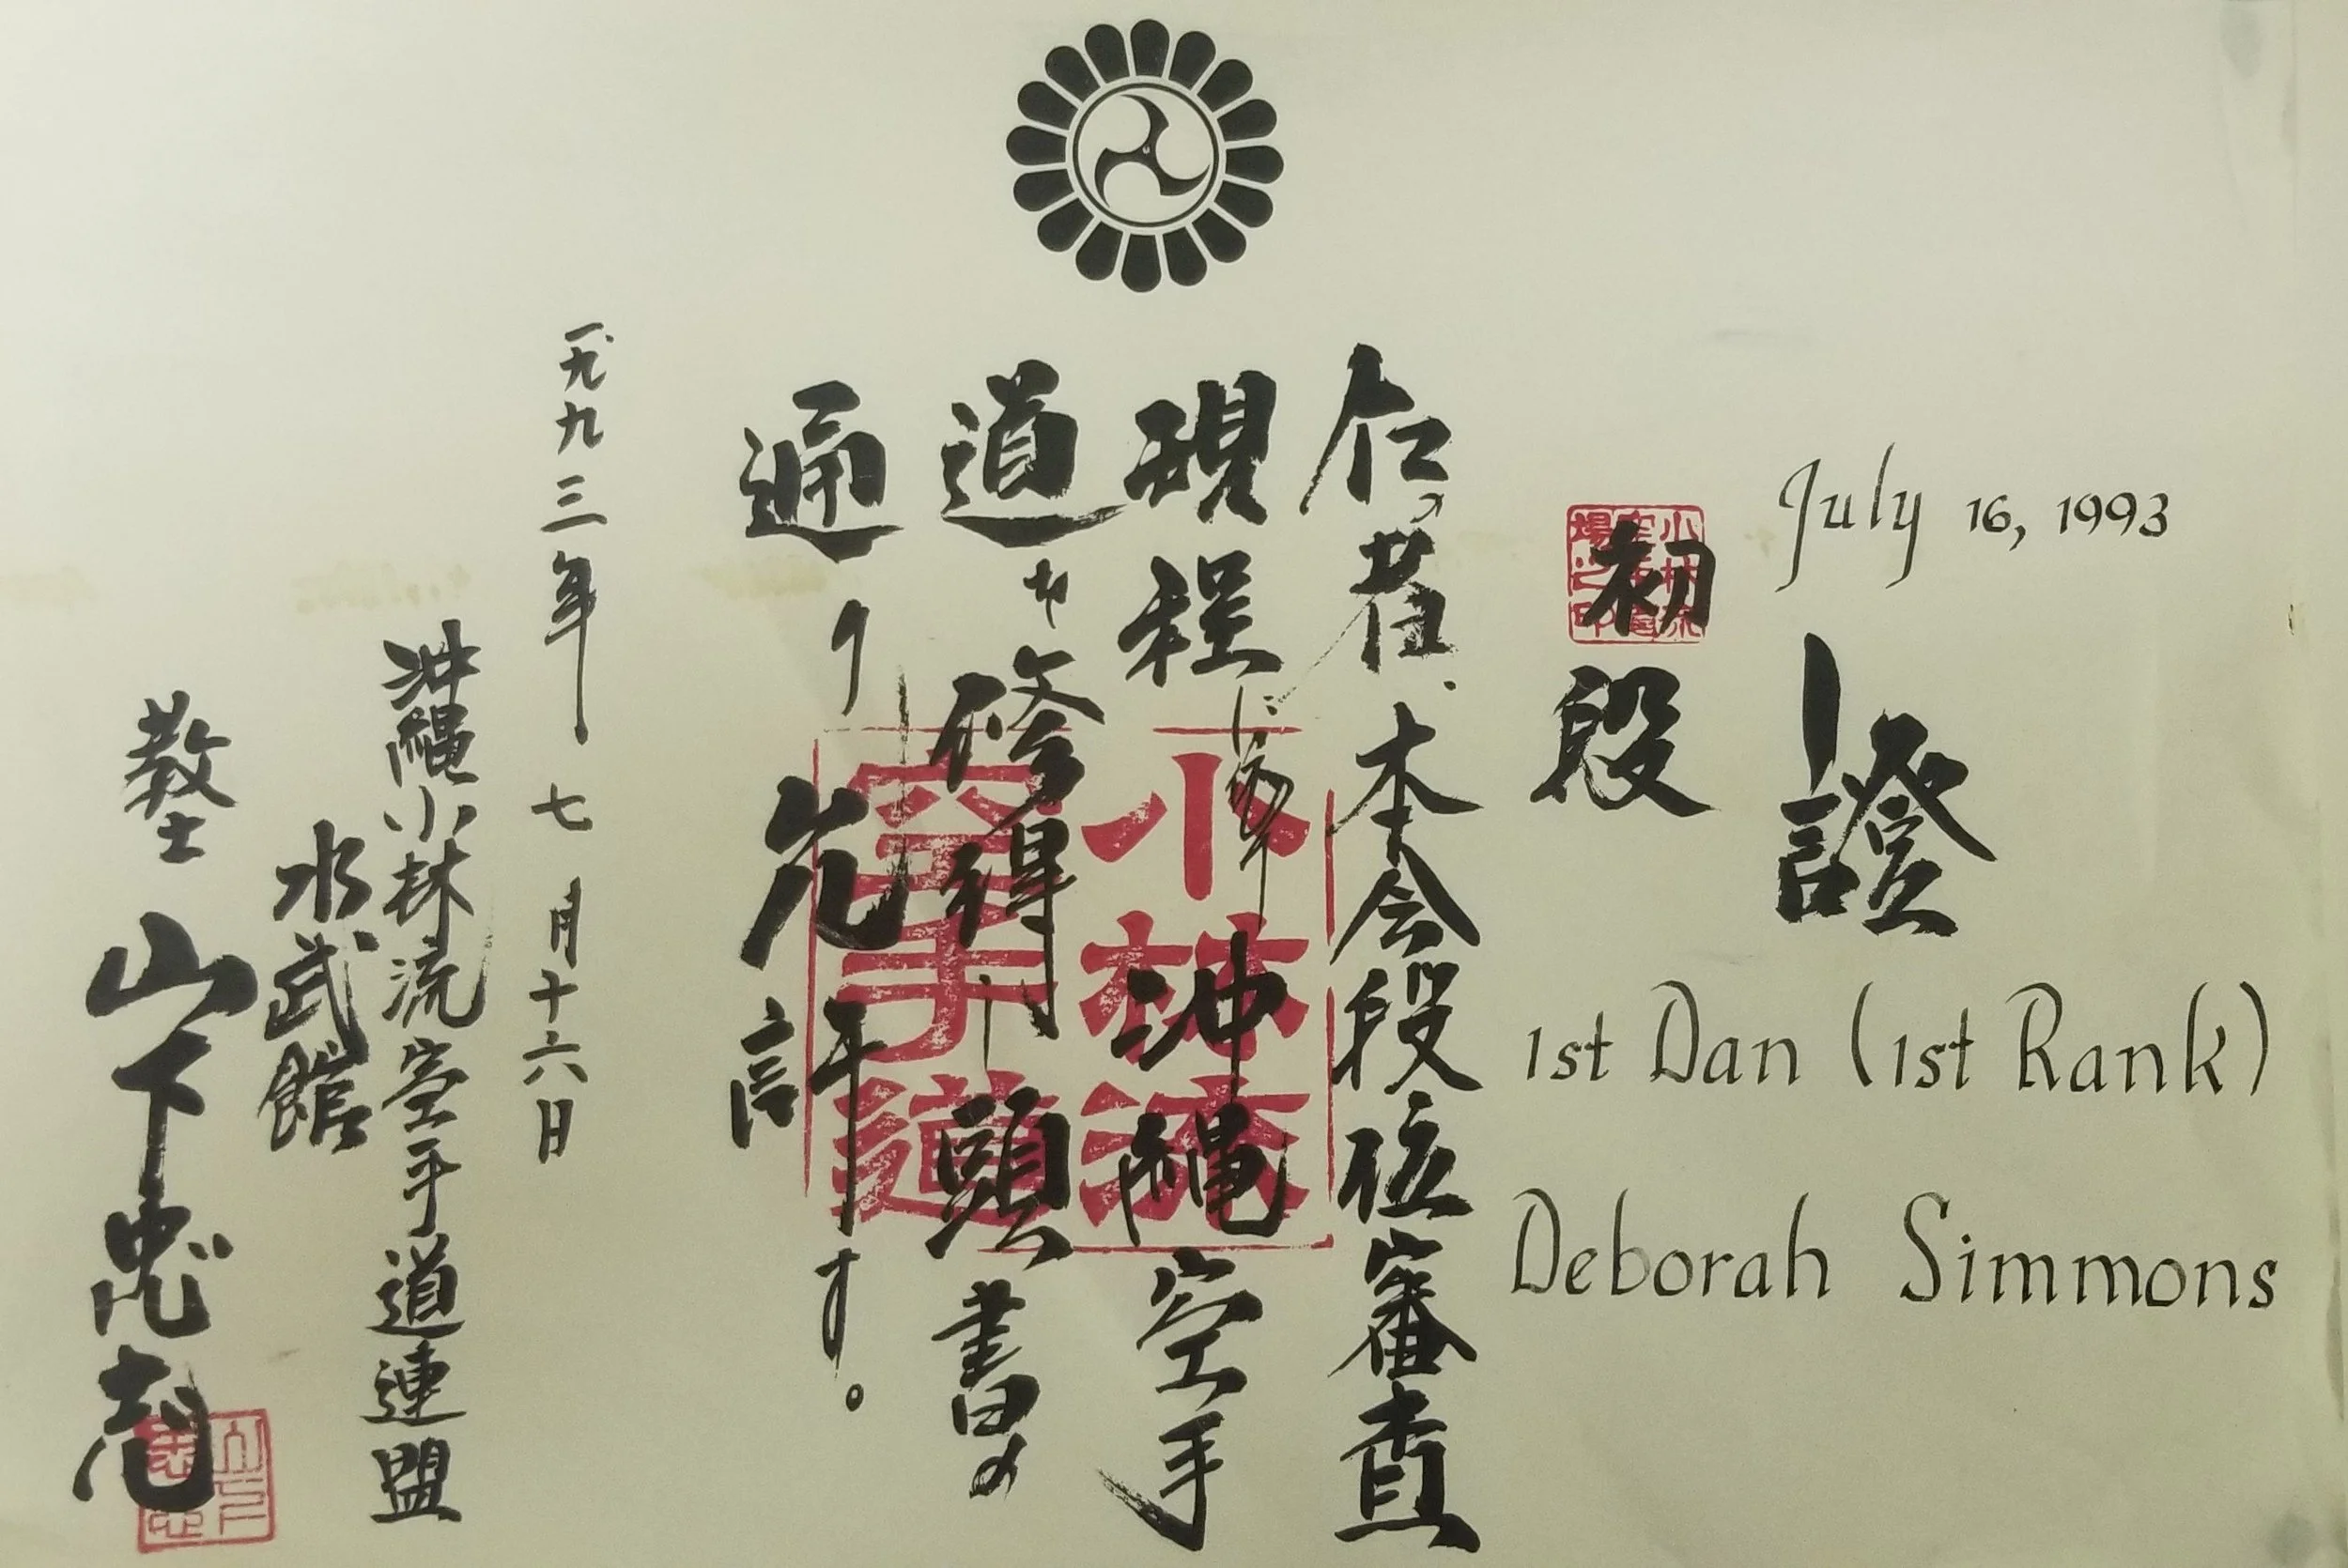 July 16, 1993
證
1st Dan (1st Rank)
Deborah Simmons
初段
本会段位審査
規程に 沖縄空手
道 を修得し頭書の
通り允許す。
小林流
空手道
一九九三年七月十六日
沖縄小林流空手道連盟
水武館
教士 山下忠志